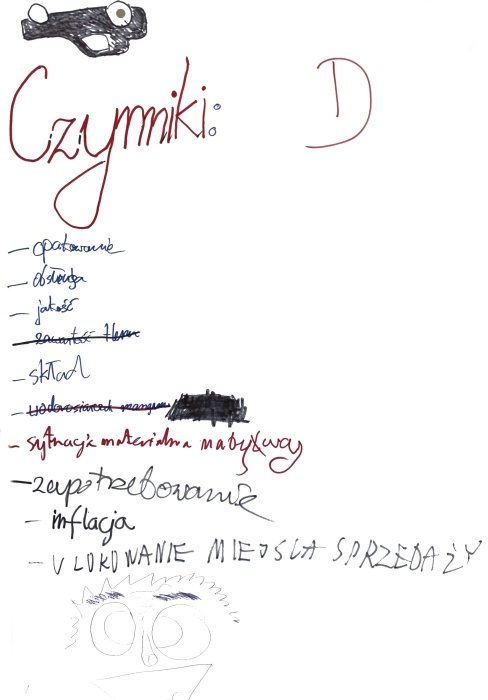 Czynniki: D
- opakowanie
- obsługa
- jakość
- skład
- sytuacja materialna nabywcy
- zapotrzebowanie
- inflacja
- ULOKOWANIE MIEJSCA SPRZEDAŻY